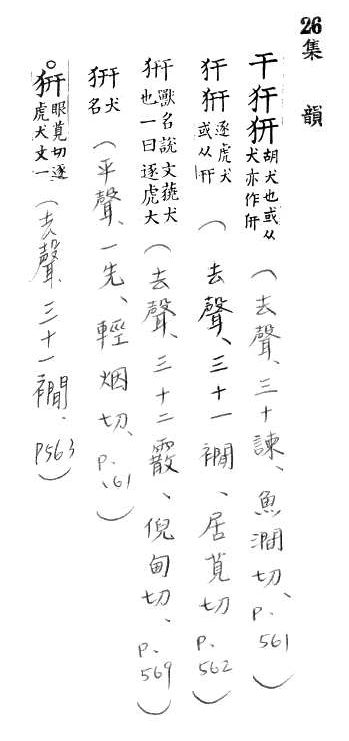 26集韻
干犴豜胡犬也或从犬亦作豜（去聲、三十諫、魚澗切、P.561）
犴犴逐虎犬或从幵（去聲、三十一襇、居莧切P.562）
豜獸名說文獟犬也一曰逐虎犬（去聲、三十二霰、倪甸切、P.569）
豜犬名（平聲、一先、輕烟切、P.161）
豜眼莧切逐虎犬文一（去聲、三十一襇、P563）